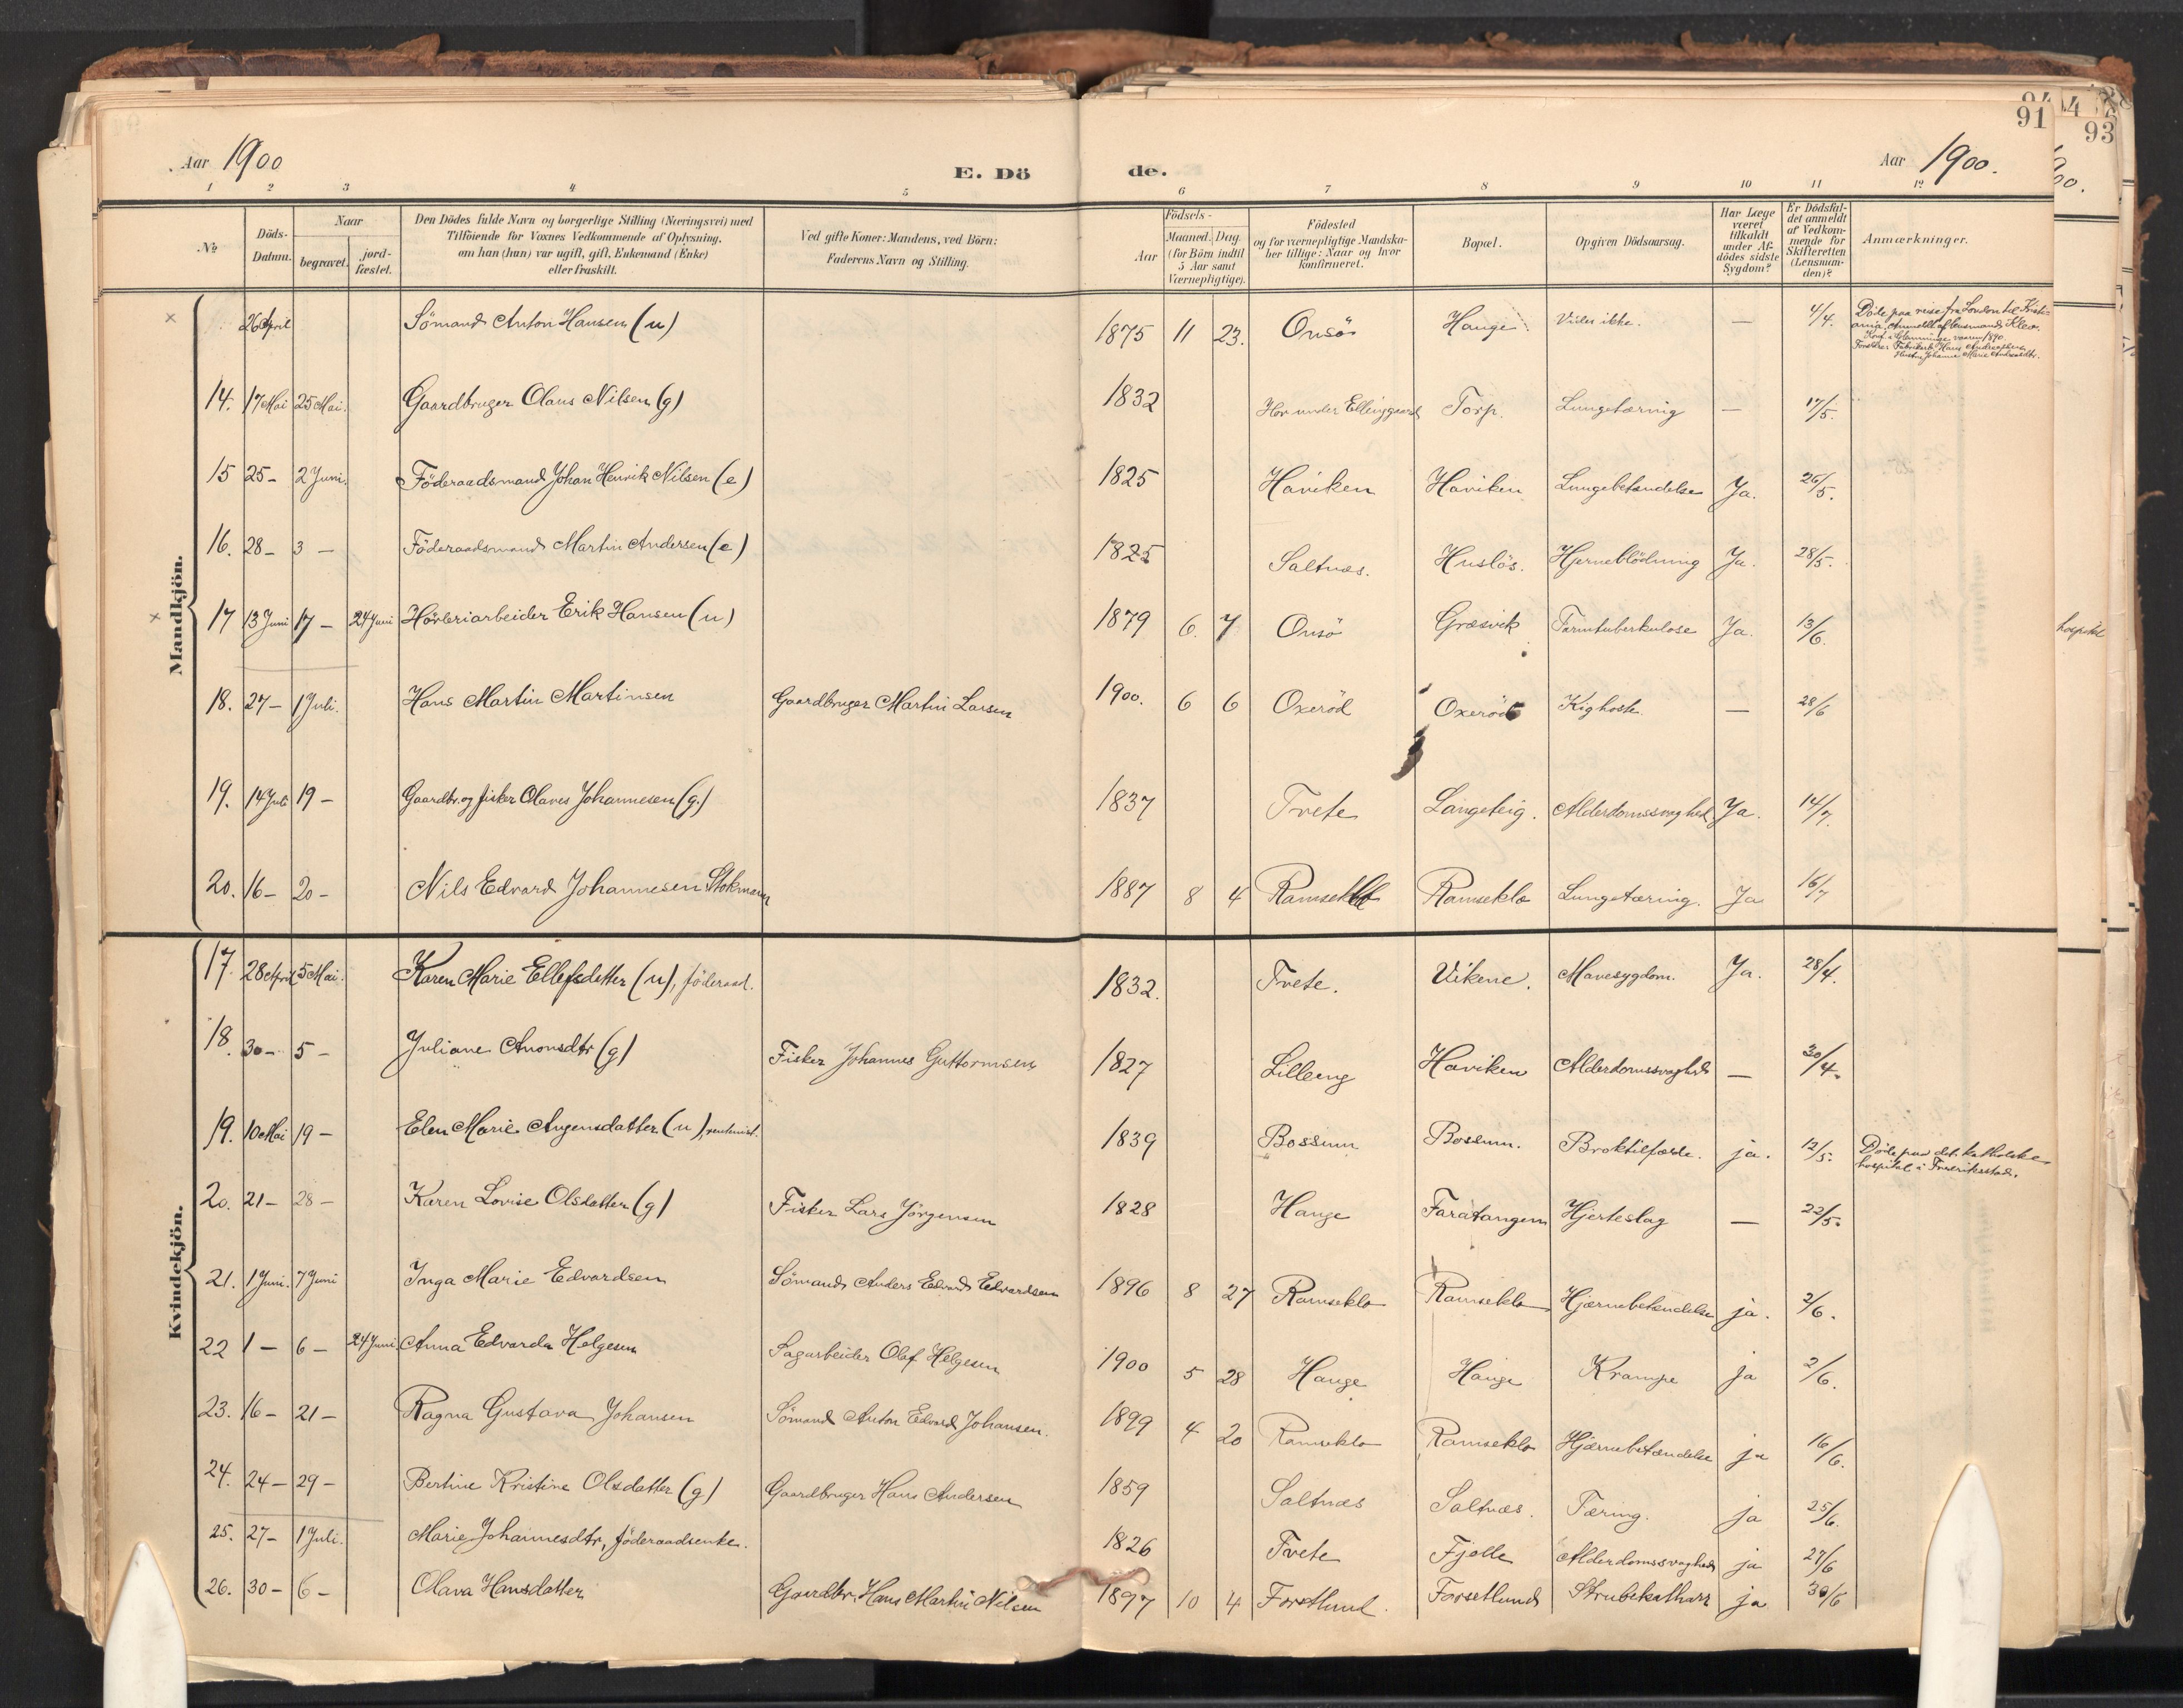 91
93
Aar 1900
E. Dö
de.
Aar 1900.
1 2 3 4 5 6 7 8 9 10 11 12
No
Döds-Datum.
Naar
begravet.
jord-fæstet.
Den Dödes fulde Navn og borgerlige Stilling (Næringsvei) med
Tilföiende for Voxnes Vedkommende af Oplysning,
om han (hun) var ugift, gift, Enkemand (Enke)
eller fraskilt.
Ved gifte Koner: Mandens, ved Börn:
Faderens Navn og Stilling.
Födsels-
Aar
Maaned. Dag.
(for Börn indtil
5 Aar samt
Værnepligtige).
Födested
og for værnepligtige Mandska-
ber tillige: Naar og hvor
konfirmeret.
Bopæl.
Opgiven Dödsaarsag.
Har Læge
været
tilkaldt
under Af-
dödes sidste
Sygdom?
Er Dödsfal-
det anmeldt
af Vedkom-
mende for
Skifteretten
(Lensman-
den)?
Anmærkninger.
Mandkjön.
26 April Sömand Anton Hansen (u) 1875 11 23. Onsö Hauge Vides ikke. — 4/4. Döde paa reise fra London til Kristi-
ania. Anmeldt af lensmand Klev.
Konf. i Glemminge vaaren 1890.
Forældre: Fabrikarb. Hans Andreassen
Hustru Johanne Marie Andreasdtr.
14. 17 Mai 25 Mai. Gaardbruger Olaus Nilsen (g) 1832 Hov under Ellinggaard Torp. Lungetæring — 17/5.
15 25 - 2 Juni. Föderaadsmand Johan Henrik Nilsen (e) 1825 Haviken Haviken Lungebetændelse Ja. 26/5.
16. 28 - 3 — Föderaadsmand Martin Andersen (e) 1825 Saltnæs. Huslös. Hjerneblödning Ja. 28/5.
17 13 Juni 17 — 24 Juni Hövleriarbeider Erik Hansen (u) 1879 6. 7 Onsö Græsvik Tarmtuberkulose Ja. 13/6.
18. 27 — 1 Juli. Hans Martin Martinsen Gaardbruger Martin Larsen 1900. 6 6 Oxeröd Oxeröd Kighoste — 28/6
19. 14 Juli 19 — Gaardbr. og fisker Olaves Johannesen (g.) 1837 Tvete Langeteig. Alderdomssvaghed Ja. 14/7.
20. 16 — 20 — Nils Edvard Johannesen Stokmann 1887 8 4 Ramseklo Ramseklo Lungetæring. Ja 16/7
Kvindekjön.
17. 28 April 5 Mai. Karen Marie Ellefsdatter (u), föderaad. 1832. Tvete. Vikene. Mavesygdom. Ja. 28/4.
18. 30 — 5 — Juliane Anonsdtr (g) Fisker Johannes Guttormsen 1827 Lilleeng Haviken Alderdomssvaghed — 30/4.
19. 10 Mai 19 — Elen Marie Augensdatter (u), rentenist. 1839 Bossum Bossum. Broktilfælde. ja. 12/5. Döde paa det katholske
hospital i Fredriksstad.
20. 21 — 28 — Karen Lovise Olsdatter (g) Fisker Lars Jörgensen 1828 Hauge Faratangen Hjerteslag — 22/5.
21. 1 Juni. 7 Juni Inga Marie Edvardsen Sömand Anders Edvard Edvardsen 1896 8 27 Ramseklo Ramseklo Hjærnebetændelse ja. 2/6.
22 1 — 6 — 24 Juni. Anna Edvarda Helgesen Sagarbeider Olaf Helgesen 1900 5 28 Hauge Hauge Krampe ja 2/6.
23. 16 — 21 — Ragna Gustava Johansen Sömand Anton Edvard Johansen. 1899 4 20 Ramseklo Ramseklo Hjærnebetændelse ja 16/6.
24. 24 — 29 — Bertine Kristine Olsdatter (g) Gaardbruger Hans Andersen 1859 Saltnæs Saltnæs. Tæring. ja 25/6.
25. 27 — 1 Juli. Marie Johannesdtr, föderaadsenke. 1826 Tvete Fjelle Alderdomssvaghed ja 27/6
26. 30 — 6 — Olava Hansdatter Gaardbr. Hans Martin Nilsen 1897 10 4 Forsetlund. Forsetlund Strubekatharr ja 30/6
hospital